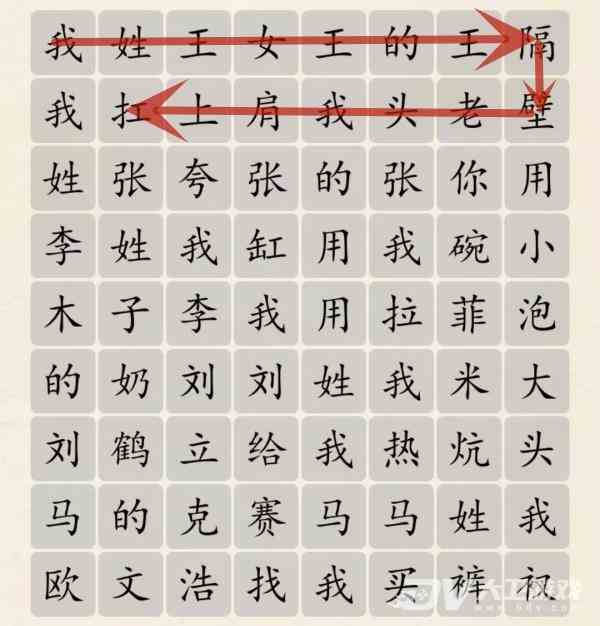 我姓王女王的王隔
我扛上肩我头老壁
姓张夸张的张你用
李姓我缸用我碗小
木子李我用拉菲泡
的奶刘刘姓我米大
刘鹤立给我热炕头
马的克赛马马姓我
欧文浩找我买裤衩
www.6dv.com